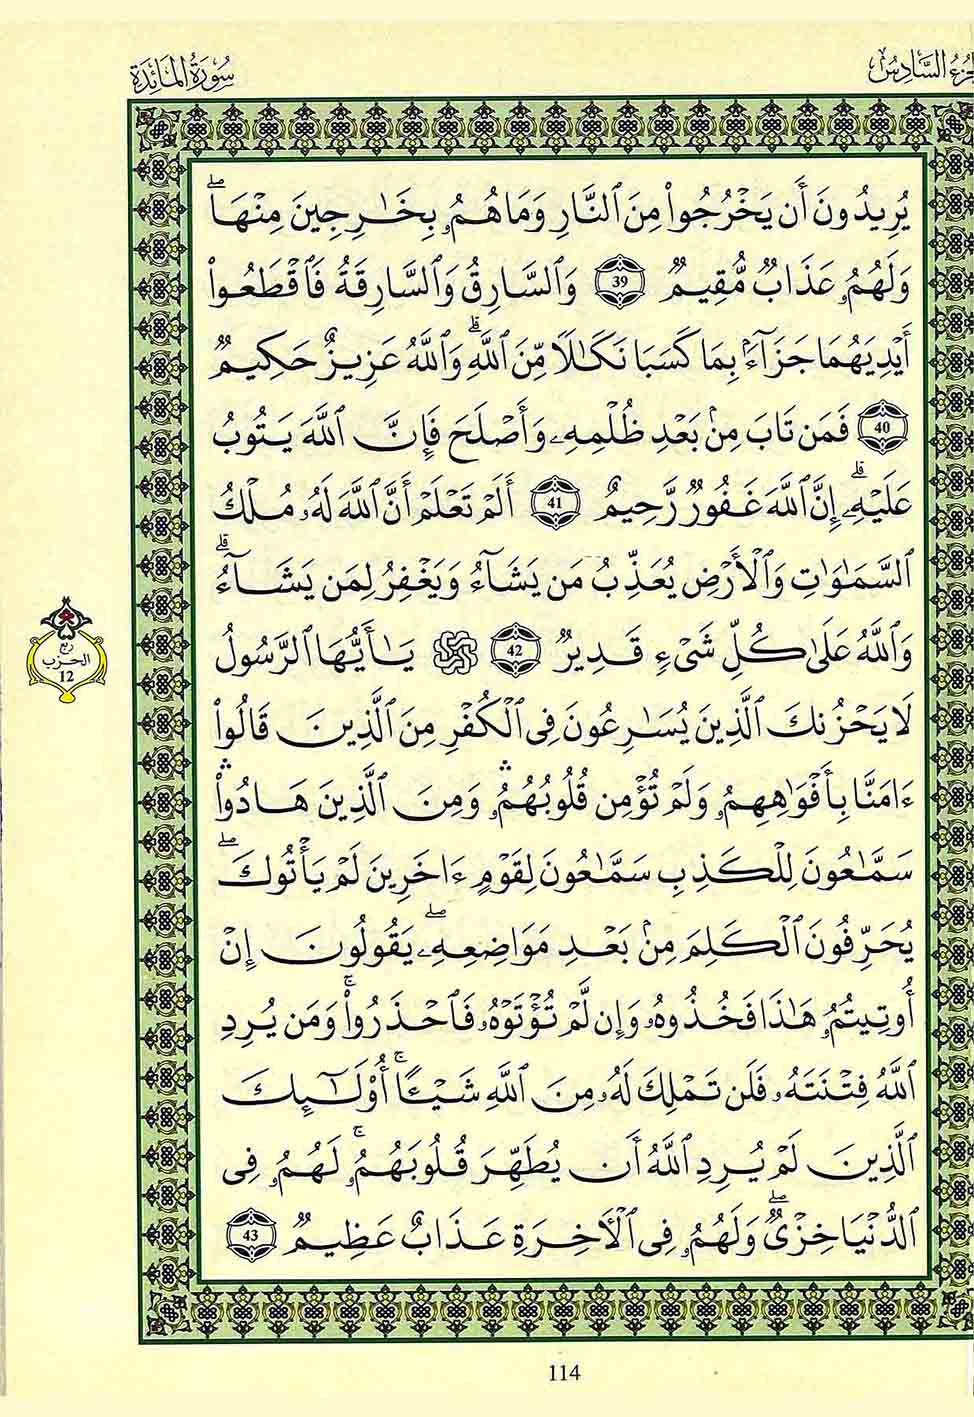 سُورَةُ المَائِدَة
الجزء السَّادِس
يُرِيدُونَ أَن يَخْرُجُواْ مِنَ ٱلنَّارِ وَمَا هُمُۥ بِخَٰرِجِينَ مِنْهَاۖ
وَلَهُمُۥ عَذَابٌ مُّقِيمٌ 39 وَٱلسَّارِقُ وَٱلسَّارِقَةُ فَٱقْطَعُواْ
أَيْدِيَهُمَا جَزَآءَۢ بِمَا كَسَبَا نَكَٰلًا مِّنَ ٱللَّهِۗ وَٱللَّهُ عَزِيزٌ حَكِيمٌ
40 فَمَن تَابَ مِنۢ بَعْدِ ظُلْمِهِۦ وَأَصْلَحَ فَإِنَّ ٱللَّهَ يَتُوبُ
عَلَيْهِۦۗ إِنَّ ٱللَّهَ غَفُورٌ رَّحِيمٌ 41 أَلَمْ تَعْلَمْ أَنَّ ٱللَّهَ لَهُۥ مُلْكُ
ٱلسَّمَٰوَٰتِ وَٱلْأَرْضِ يُعَذِّبُ مَن يَشَآءُ وَيَغْفِرُ لِمَن يَشَآءُۗ
وَٱللَّهُ عَلَىٰ كُلِّ شَىْءٍ قَدِيرٌ 42 يَٰٓأَيُّهَا ٱلرَّسُولُ
لَا يَحْزُنكَ ٱلَّذِينَ يُسَٰرِعُونَ فِى ٱلْكُفْرِ مِنَ ٱلَّذِينَ قَالُوٓاْ
ءَامَنَّا بِأَفْوَٰهِهِمُۥ وَلَمْ تُؤْمِن قُلُوبُهُمُۥۛ وَمِنَ ٱلَّذِينَ هَادُواْۛ
سَمَّٰعُونَ لِلْكَذِبِ سَمَّٰعُونَ لِقَوْمٍ ءَاخَرِينَ لَمْ يَأْتُوكَۖ
يُحَرِّفُونَ ٱلْكَلِمَ مِنۢ بَعْدِ مَوَاضِعِهِۦۖ يَقُولُونَ إِنْ
أُوتِيتُمُۥ هَٰذَا فَخُذُوهُۥ وَإِن لَّمْ تُؤْتَوْهُۥ فَٱحْذَرُواْۚ وَمَن يُرِدِ
ٱللَّهُ فِتْنَتَهُۥ فَلَن تَمْلِكَ لَهُۥ مِنَ ٱللَّهِ شَيْـًٔاۚ أُوْلَٰٓئِكَ
ٱلَّذِينَ لَمْ يُرِدِ ٱللَّهُ أَن يُطَهِّرَ قُلُوبَهُمُۥۚ لَهُمُۥ فِى
ٱلدُّنْيَا خِزْىٌۖ وَلَهُمُۥ فِى ٱلْأَخِرَةِ عَذَابٌ عَظِيمٌ 43
ربع
الحزب
12
114